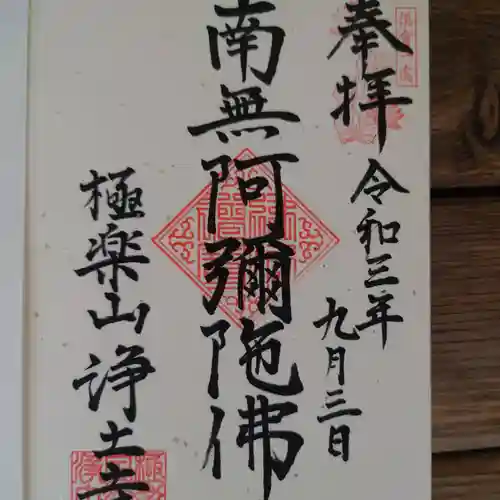 奉拝
令和三年
九月三日
南無阿彌陀佛
極楽山
浄土寺